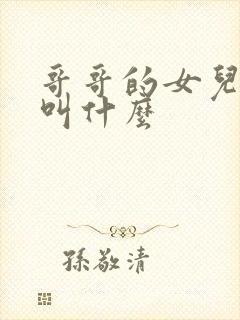 哥哥的女兒
叫什麼
孫敬清